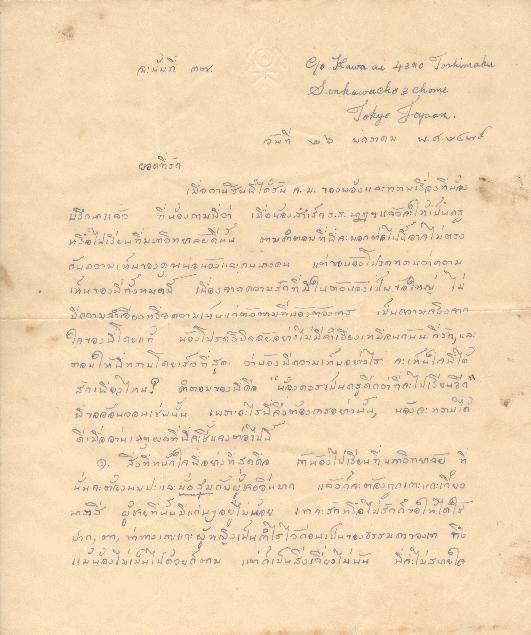 ฉะบับที่ ๓๗.
C/o Kawa ai 4390 Toshimaku
Senkawacho 3 chome
Tokyo Japan.
วันที่ ๒๖ มกราคม พ.ศ. ๒๔๗๙
ยอดที่รัก
เมื่อวานซืนพี่ได้รับ จ.ม. ของน้องและทราบเรื่องที่น้อง
ปรึกษาแล้ว ที่น้องถามพี่ว่า เมื่อน้องสำเร็จ ร.ร. แล้วจะให้เป็นครู
หรือไปเรียนที่มหาวิทยาลัยดีนั้น ตามคำตอบที่พี่จะบอกต่อไปนี้อาจไม่ตรง
กับความเห็นของคุณพ่อน้องและคนบางคน แต่ขอน้องโปรดทราบว่าความ
เห็นของพี่ทั้งหมดนี้ เนื่องจากความรักที่มีในตัวน้องเป็นข้อใหญ่ ไม่
มีความลำเอียงหรือความเห็นแก่ตัวตามที่น้องต้องการ เป็นความจริงจาก
ใจของพี่โดยแท้ น้องโปรดวินิจฉัยอย่าไม่มีลำเอียงเหมือนกันนะที่รัก, และ
ตอบให้พี่ทราบโดยเร็วที่สุด ว่าน้องมีความเห็นอย่างไร จะเห็นใจพี่ได้
สักเพียงไหน? คำตอบของพี่คือ "น้องควรเป็นครูดีกว่าที่จะไปเรียนอีก"
พี่ขออ้อนวอนเช่นนั้น เพราะอะไรพี่จึงต้องการอย่างนั้น, น้องจะทราบได้
ดีเมื่ออ่านเหตุผลที่พี่จะชี้แจงต่อไปนี้
๑. สิ่งที่หนักใจพี่อย่างที่สุดคือ ถ้าน้องไปเรียนที่มหาวิทยาลัย ที่
นั่นจะต้องพบปะและมั่วสุมกับผู้ชายเป็นมาก แล้วก็จะต้องถูกเกาะแกะเกี้ยว
พาราสี ผู้ชายที่นั่นมีแก่นๆอยู่ไม่น้อย เขาจะรักหรือไม่รักก็ขอให้ได้ใช้
ปาก, ตา, ท่าทางเกาะแกะผู้หญิงเป็นกำไรไว้ก่อนเป็นของธรรมดาของเขา ถึง
แม้น้องไม่เป็นไปด้วยก็ตาม แต่ก็เป็นสิ่งเกี่ยวโยงนั้น พี่ก็ไม่สบายใจ